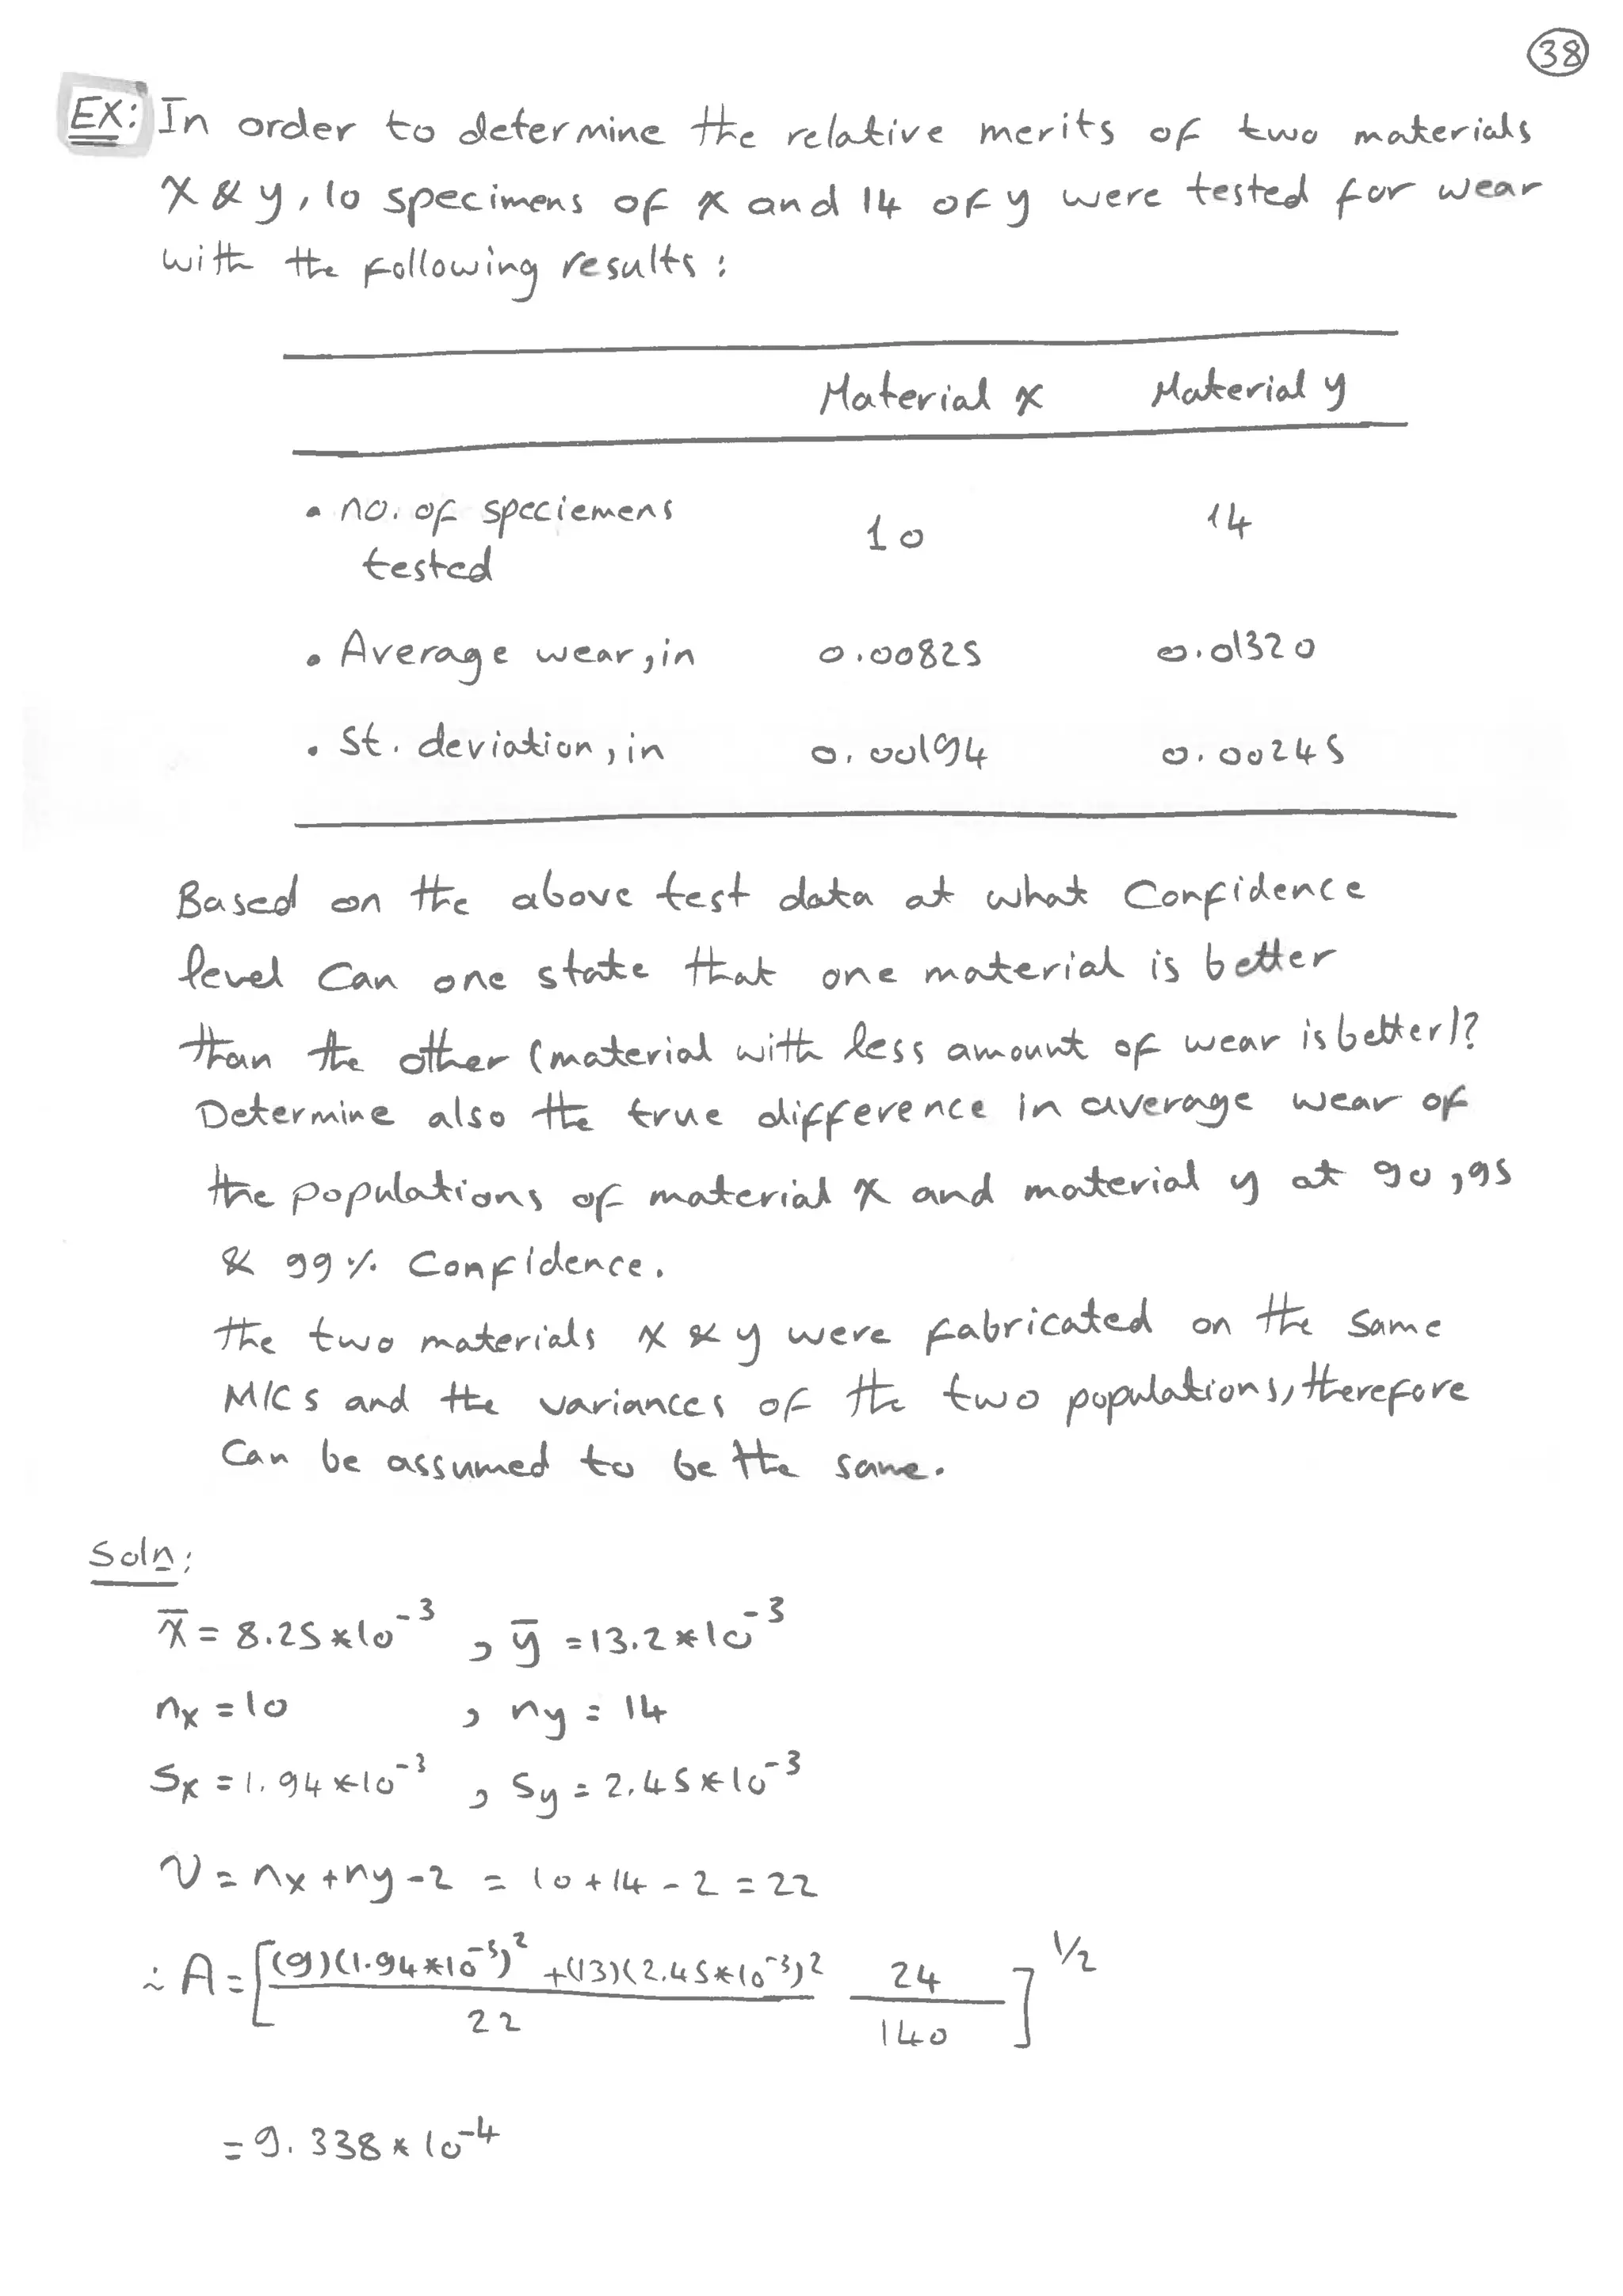 38
EX: In order to determine the relative merits of two materials
X & y, 10 specimens of x and 14 of y were tested for wear
with the following results:
Material x Material y
• no. of speciemens tested 10 14
• Average wear, in 0.00825 0.01320
• St. deviation, in 0.00194 0.00245
Based on the above test data at what Confidence
level Can one state that one material is better
than the other (material with less amount of wear is better)?
Determine also the true difference in average wear of
the populations of material x and material y at 90, 95
& 99% Confidence.
the two materials x & y were fabricated on the same
M/Cs and the variances of the two populations, therefore
Can be assumed to be the same.
Soln:
x̄ = 8.25*10⁻³ , ȳ = 13.2*10⁻³
nx = 10 , ny = 14
Sx = 1.94*10⁻³ , Sy = 2.45*10⁻³
ν = nx + ny - 2 = 10 + 14 - 2 = 22
∴ A = [ (9)(1.94*10⁻³)² + (13)(2.45*10⁻³)² / 22 24 / 140 ]^1/2
= 9.338*10⁻⁴